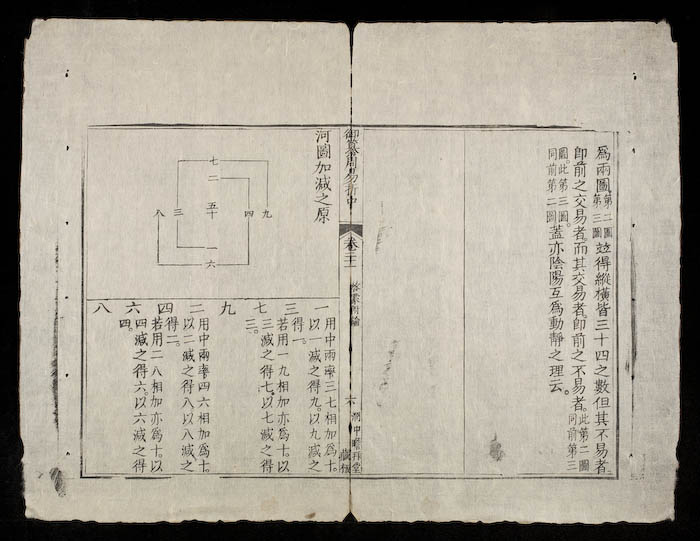 為兩圖第二圖第三圖竝得縱橫皆三十四之數但其不易者
即前之交易者而其交易者即前之不易者此第二圖同前第三
圖此第三圖同前第二圖蓋亦陰陽互為動靜之理云。
御纂周易折中
卷二十一
啓蒙附論
藏板
河圖加減之原
七
二
八 三 五十 四 九
一
六
一 三 七 九 二 四 六 八
用中兩率三七相加為十。
以一減之得九。以九減之
得一。
若用一九相加亦為十以
三減之得七。以七減之得
三。
用中兩率四六相加為十。
以二減之得八以八減之
得二。
若用二八相加亦為十以
四減之得六。以六減之得
四。